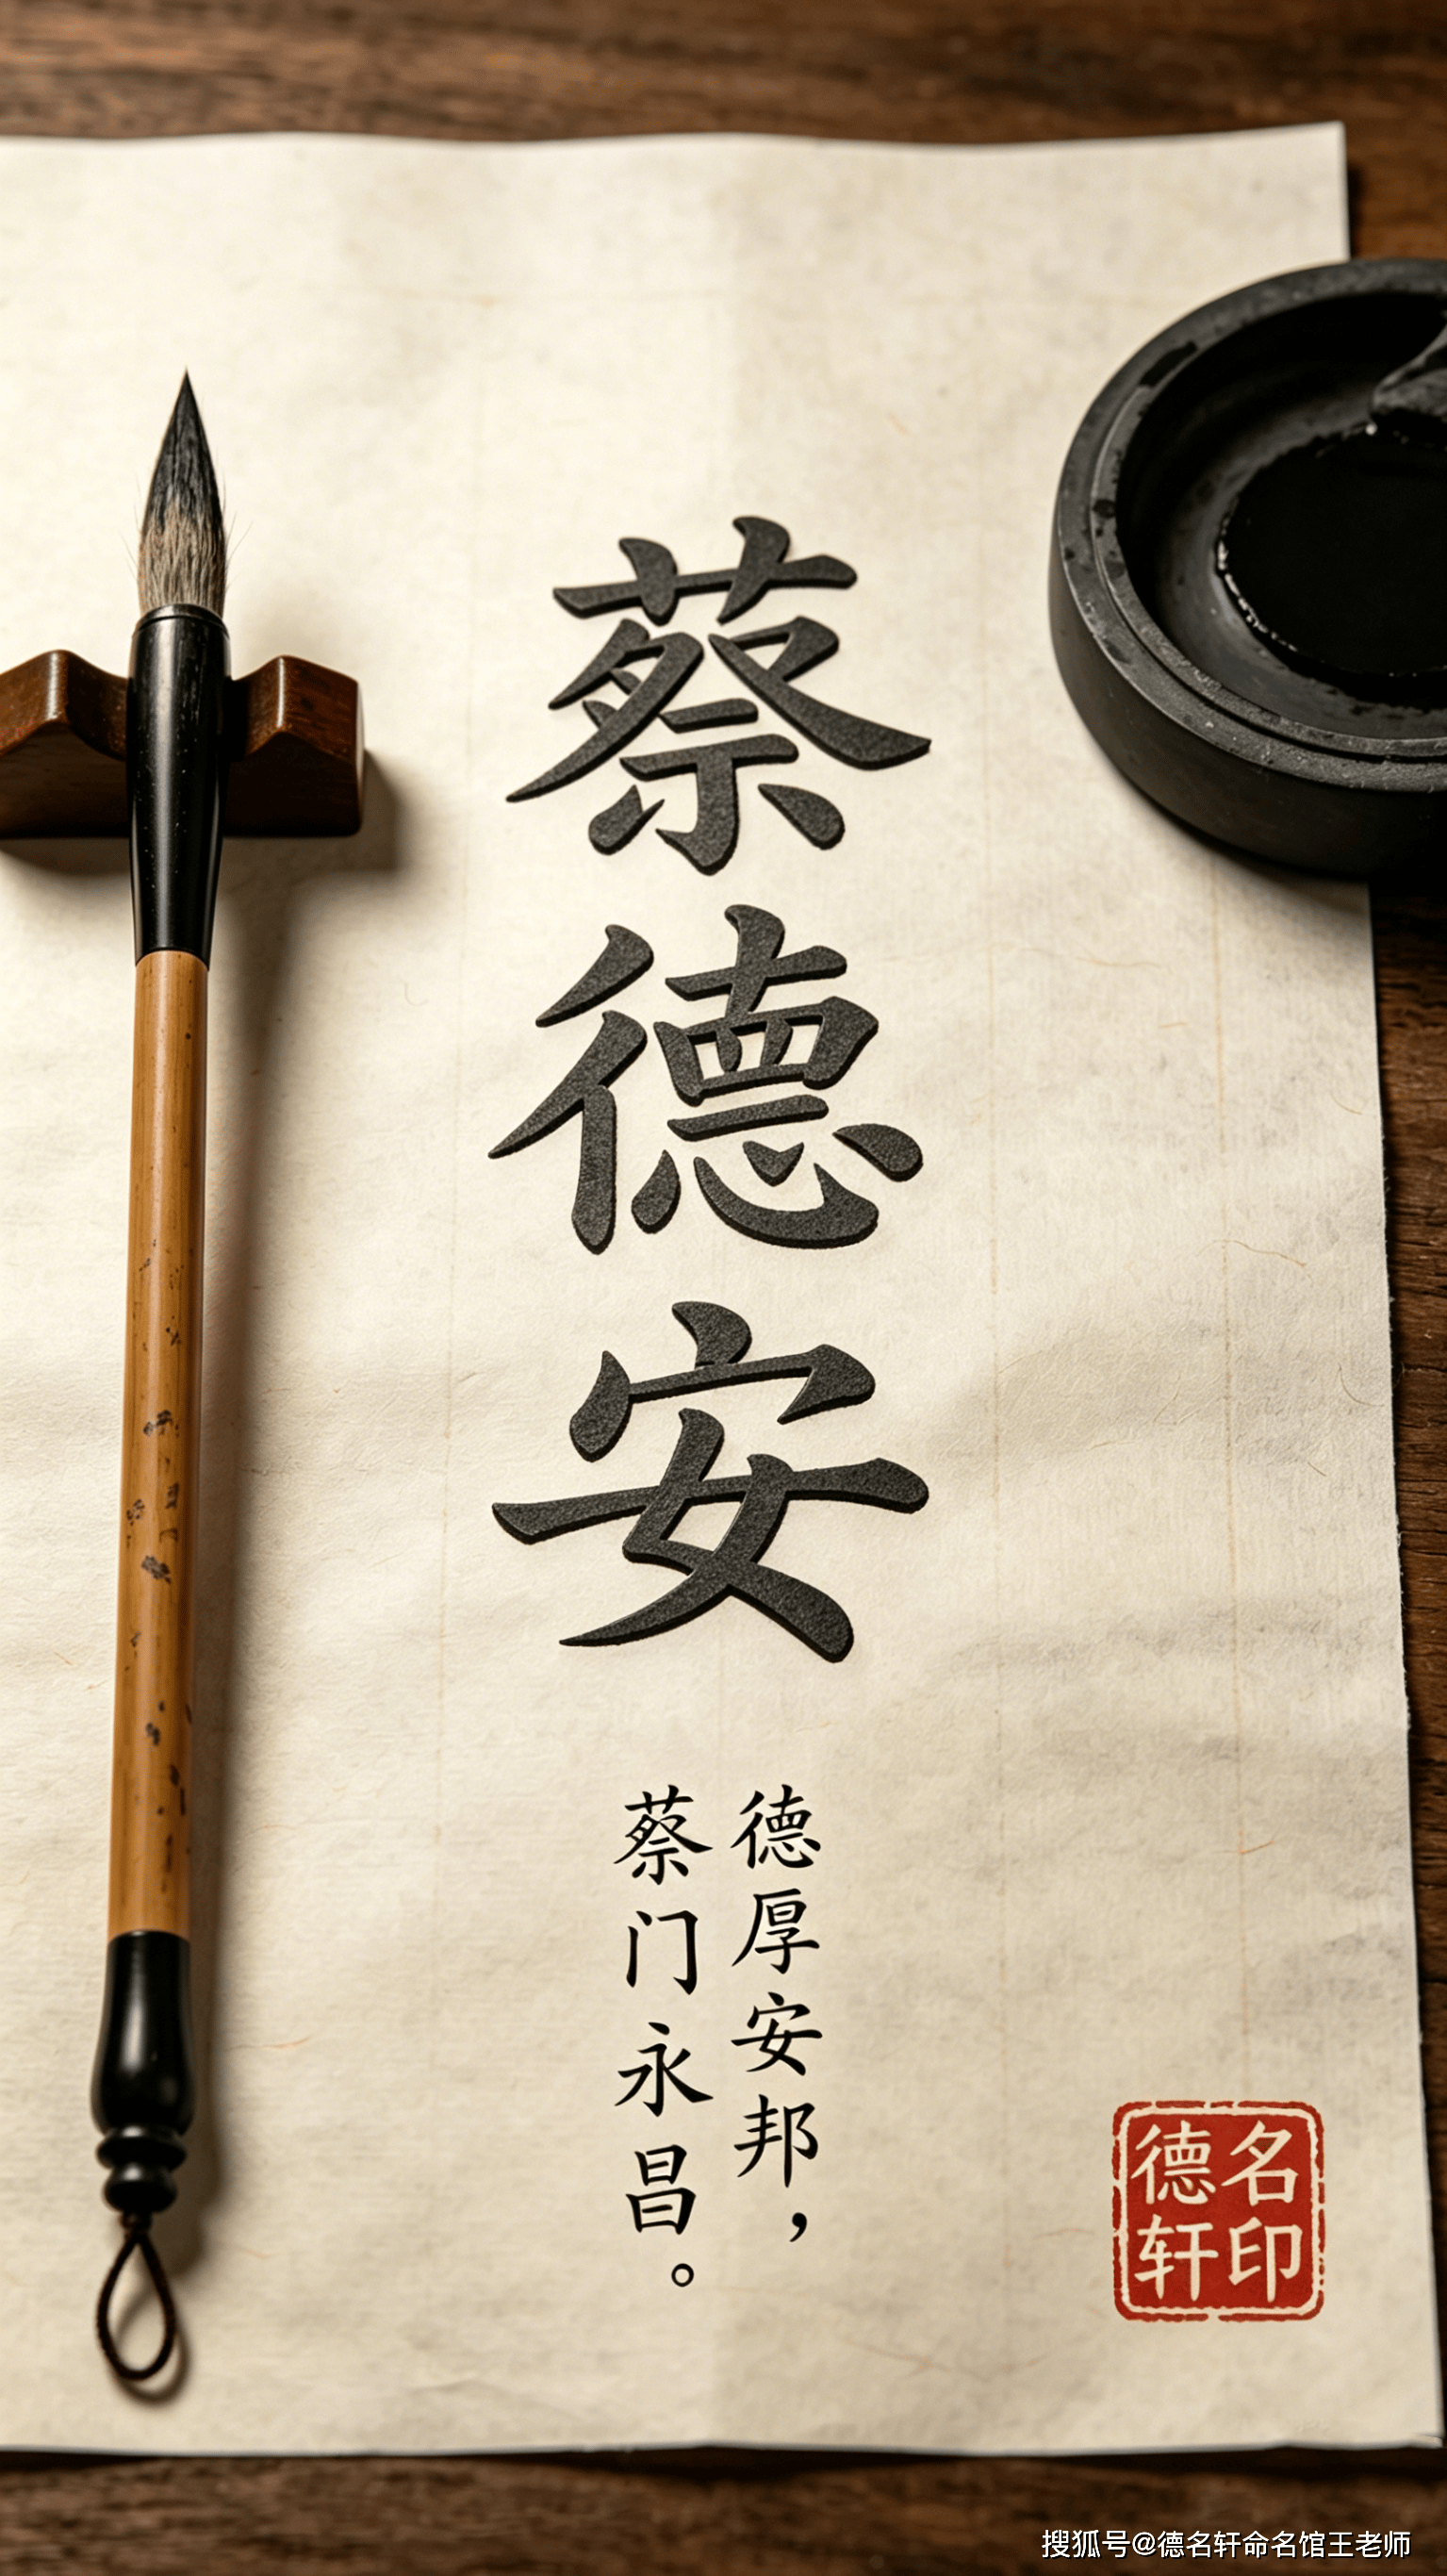 蔡德安
德厚安邦，
蔡门永昌。
德名
轩印
搜狐号@德名轩命名馆王老师